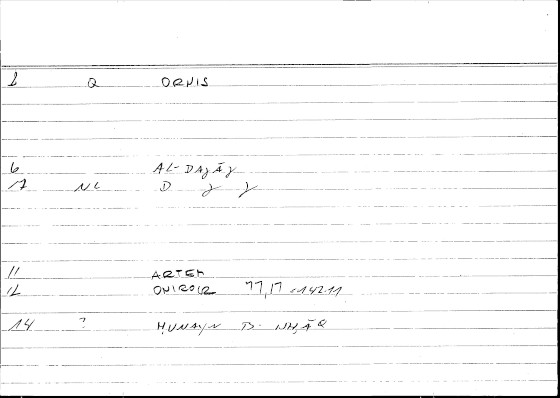 1 Q ORNIS
6 AL-DAǧĀǧ
NL D ǧ ǧ
11 ARTEM
12 ONIROCR 77,17 =142.11
14 ? ḤUNAYN B. ISḤĀQ